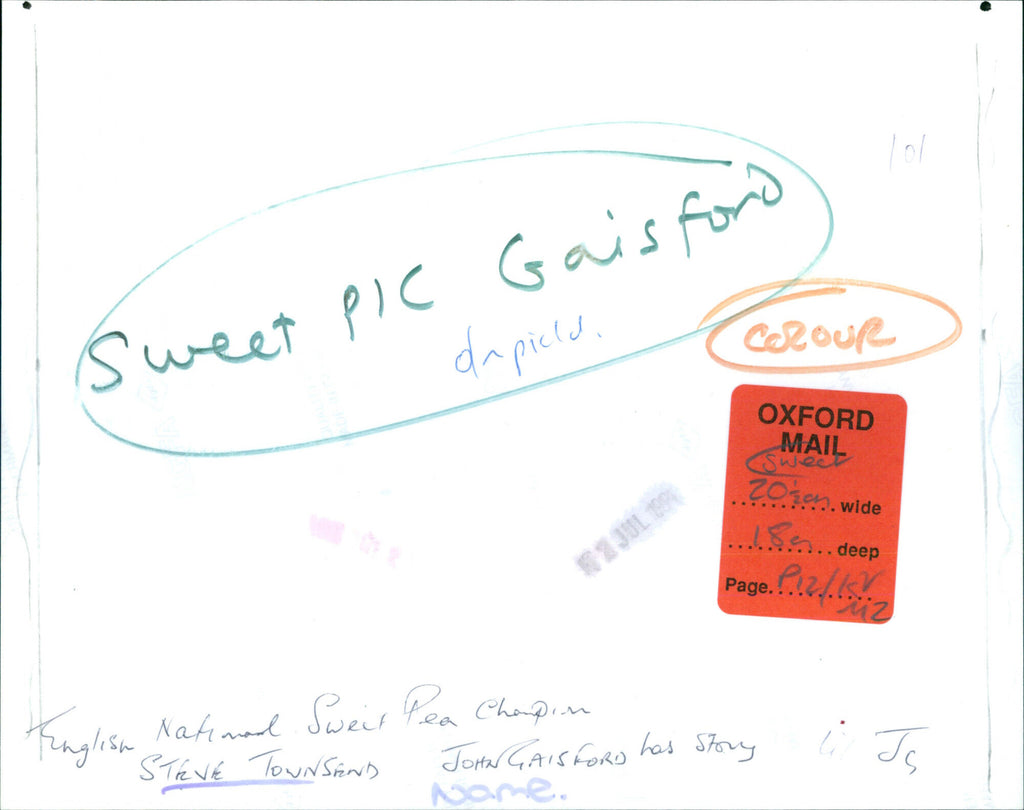 101
Sweet PIC Gaisford
COLOUR
OXFORD
MAIL
Sweet
20½cm wide
18cm deep
Page. P12/KV
M2
JUL 199
English National Sweet Pea Champion
STEVE TOWNSEND JOHN GAISFORD has story
JG
Name.